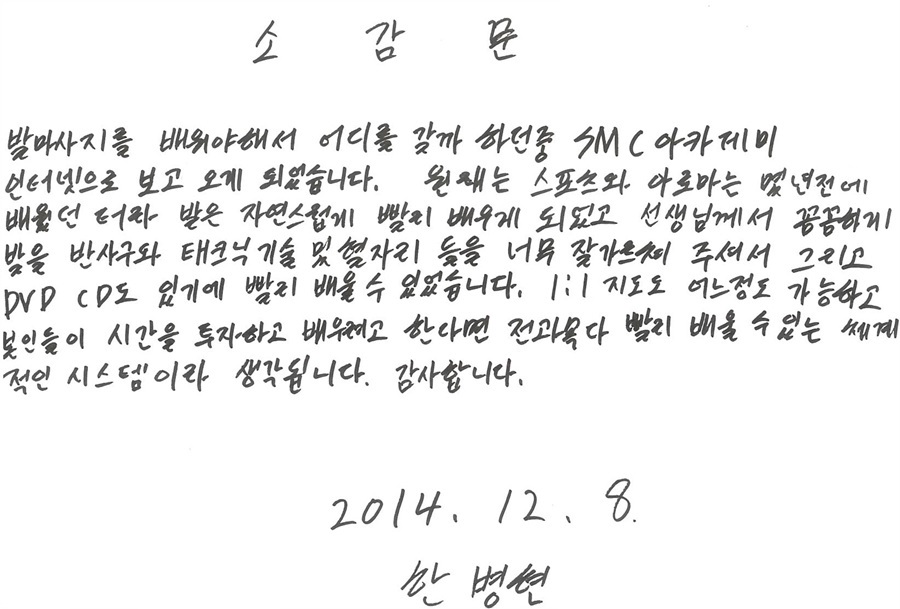 소 감 문
발마사지를 배워야해서 어디를 갈까 하던중 SMC아카데미
인터넷으로 보고 오게 되었습니다. 원래는 스포츠와 아로마는 몇년전에
배웠던 터라 발은 자연스럽게 빨리 배우게 되었고 선생님께서 꼼꼼하게
발을 반사구와 태크닉기술 및 혈자리 들을 너무 잘가르쳐 주셔서 그리고
DVD CD도 있기에 빨리 배울 수 있었습니다. 1:1 지도도 어느정도 가능하고
본인들이 시간을 투자하고 배우려고 한다면 전과목다 빨리 배울 수 있는 체계
적인 시스템이라 생각됩니다. 감사합니다.
2014. 12. 8.
한 병현